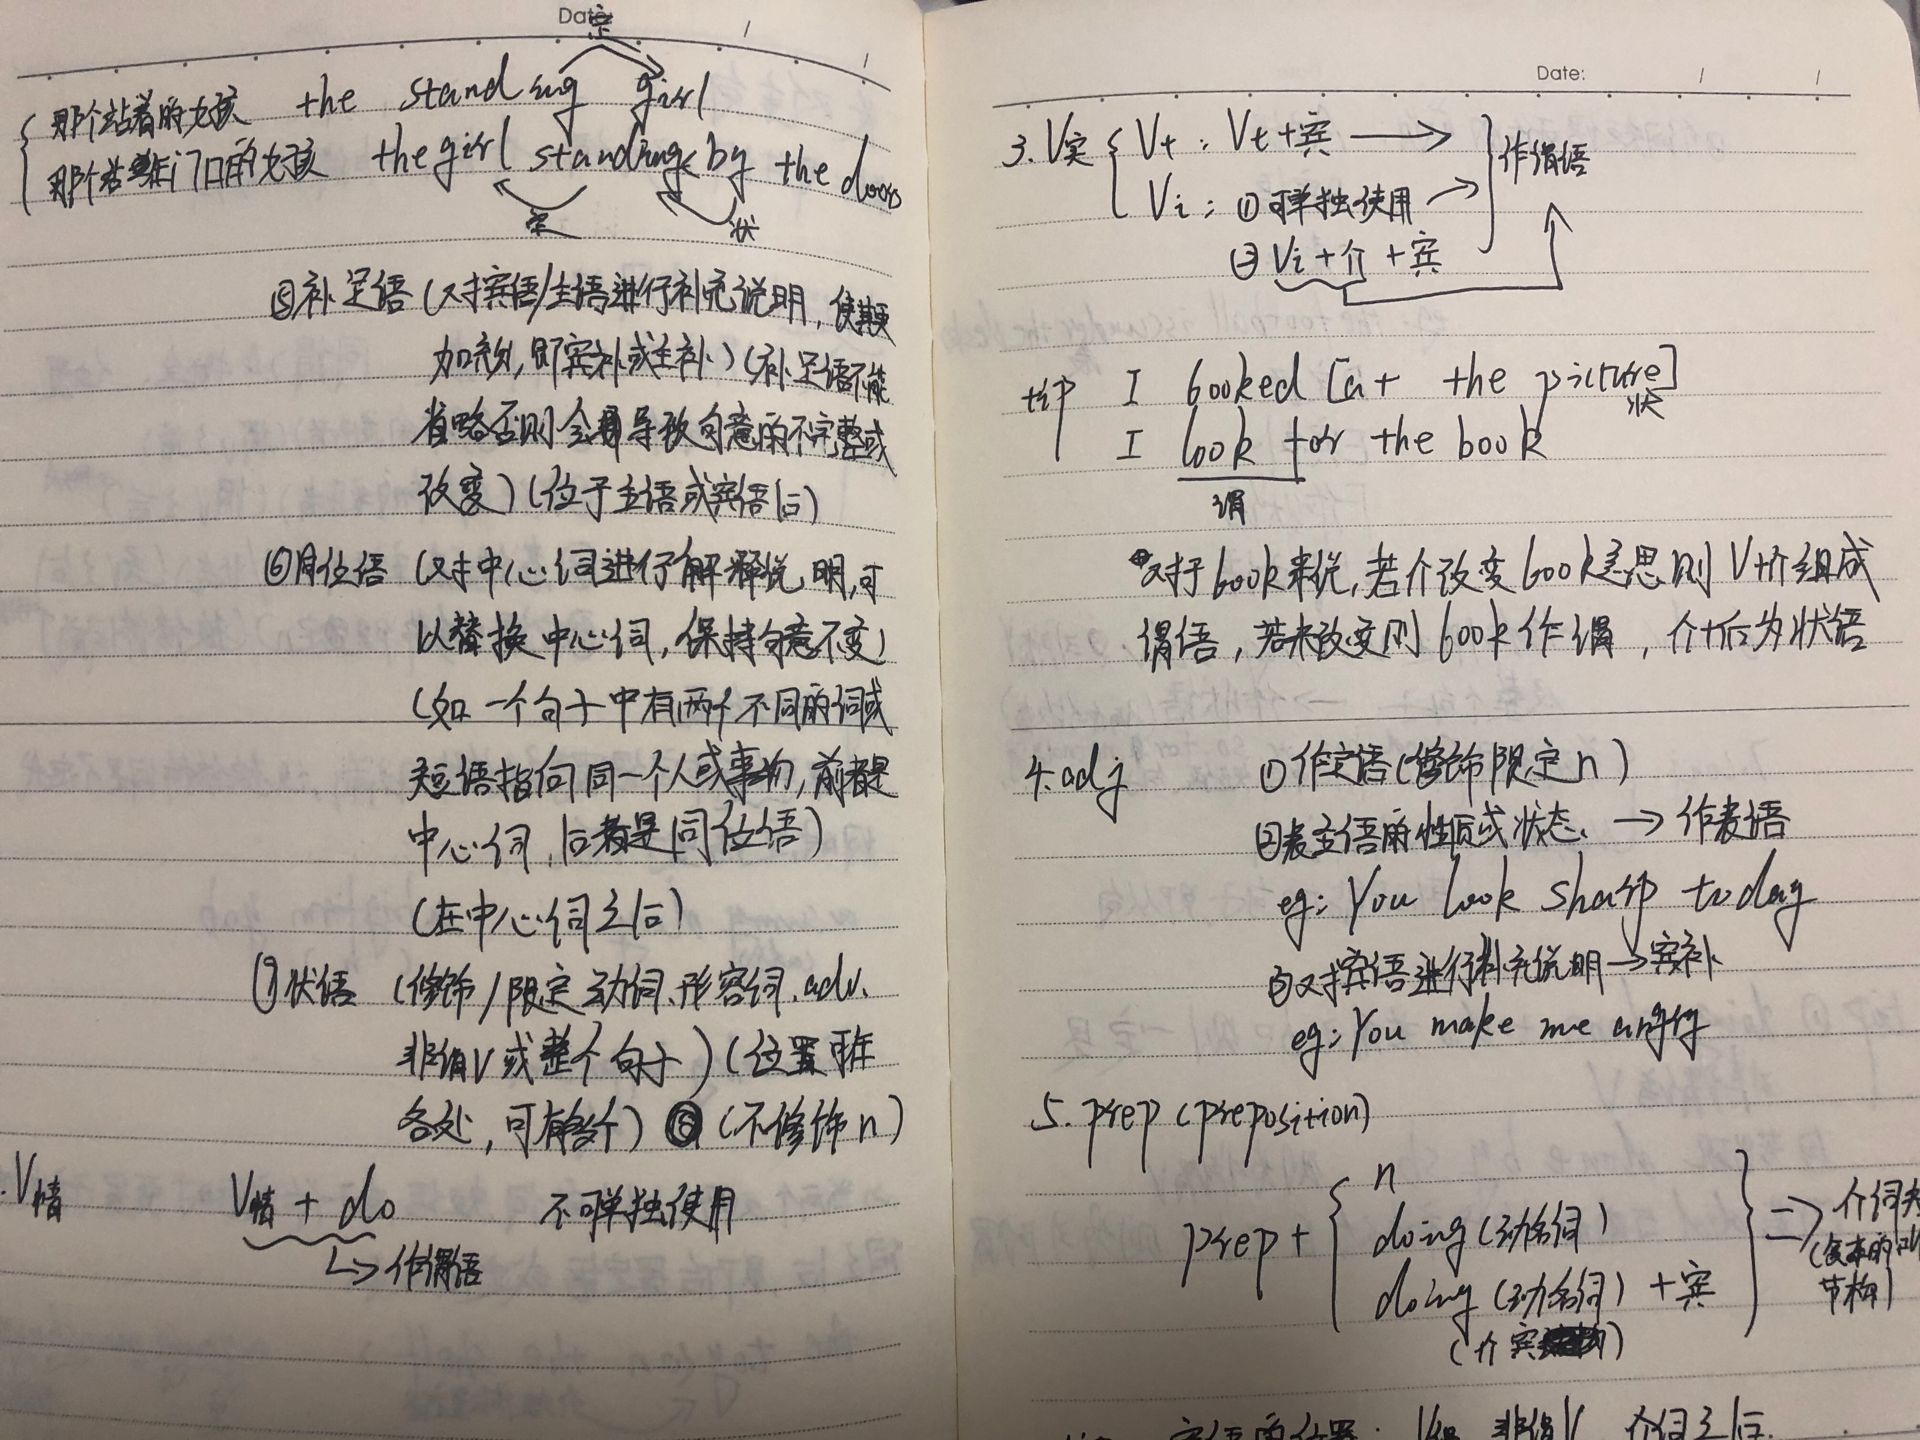 Date: / /
定
那个站着的女孩 the standing girl
那个站在门口的女孩 the girl standing by the door
定 状
⑤补足语(对宾语/主语进行补充说明,使其更
加充分,即宾补或主补)(补足语不能
省略否则会导致句意的不完整或
改变)(位于主语或宾语后)
⑥同位语(对中心词进行解释说明,可
以替换中心词,保持句意不变)
(如一个句子中有两个不同的词或
短语指向同一个人或事物,前者是
中心词,后者是同位语)
(在中心词之后)
⑦状语(修饰/限定动词、形容词、adv、
非谓V或整个句子)(位置可在
各处,可有多个)(不修饰n)
V情 V情+do 不可单独使用
↳作谓语
Date: / /
3.V实 { Vt:Vt+宾 → } 作谓语
Vi:①可单独使用 →
②Vi+介+宾
tip I booked [at the picture]
状
I look for the book
谓
对于book来说,若介改变book意思则V+介组成
谓语,若未改变则book作谓,介+后为状语
4.adj ①作定语(修饰限定n)
②表主语的性质或状态 → 作表语
eg:You look sharp today
③对宾语进行补充说明→宾补
eg:You make me angry
5.prep(preposition)
n
prep+ { doing(动名词) } ⇒ 介词
doing(动名词)+宾
(介宾
定语的位置: 非谓V 介词之后